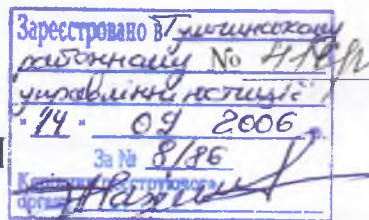 Зареєстровано в Тульчинському
районному №
управлінні юстиції
"14" 09 2006
За № 8/86
Керівник реєструючого
органу